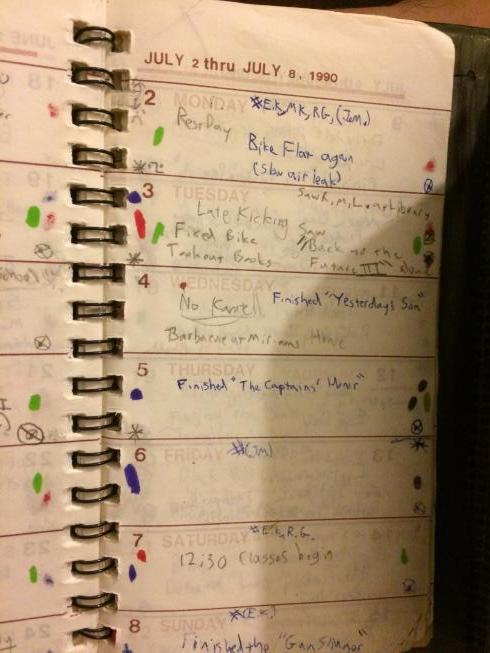 JULY 2 thru JULY 8, 1990
2 MONDAY *E.K, MK, RG, (J.M.)
Rest Day
Bike Flat again
(slow air leak)
3 TUESDAY Saw K, M, L at Library
Late Kicking Saw
Fixed Bike "Back to the
Tookout Books Future III"
4 WEDNESDAY
No Karate Finished "Yesterdays Son"
Barbecue at Miriams House
5 THURSDAY
Finished "The Captains' Honor"
6 FRIDAY *(JM)
7 SATURDAY *E.K, R.G.
12:30 Classes begin
8 SUNDAY *(E.K.)
Finished the "Gunslinger"